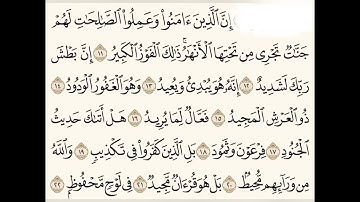 إِنَّ ٱلَّذِينَ ءَامَنُوا۟ وَعَمِلُوا۟ ٱلصَّـٰلِحَـٰتِ لَهُمْ
جَنَّـٰتٌ تَجْرِى مِن تَحْتِهَا ٱلْأَنْهَـٰرُ ۚ ذَٰلِكَ ٱلْفَوْزُ ٱلْكَبِيرُ ١١ إِنَّ بَطْشَ
رَبِّكَ لَشَدِيدٌ ١٢ إِنَّهُۥ هُوَ يُبْدِئُ وَيُعِيدُ ١٣ وَهُوَ ٱلْغَفُورُ ٱلْوَدُودُ ١٤
ذُو ٱلْعَرْشِ ٱلْمَجِيدُ ١٥ فَعَّالٌ لِّمَا يُرِيدُ ١٦ هَلْ أَتَىٰكَ حَدِيثُ
ٱلْجُنُودِ ١٧ فِرْعَوْنَ وَثَمُودَ ١٨ بَلِ ٱلَّذِينَ كَفَرُوا۟ فِى تَكْذِيبٍ ١٩ وَٱللَّهُ
مِن وَرَآئِهِم مُّحِيطٌۢ ٢٠ بَلْ هُوَ قُرْءَانٌ مَّجِيدٌ ٢١ فِى لَوْحٍ مَّحْفُوظٍۭ ٢٢